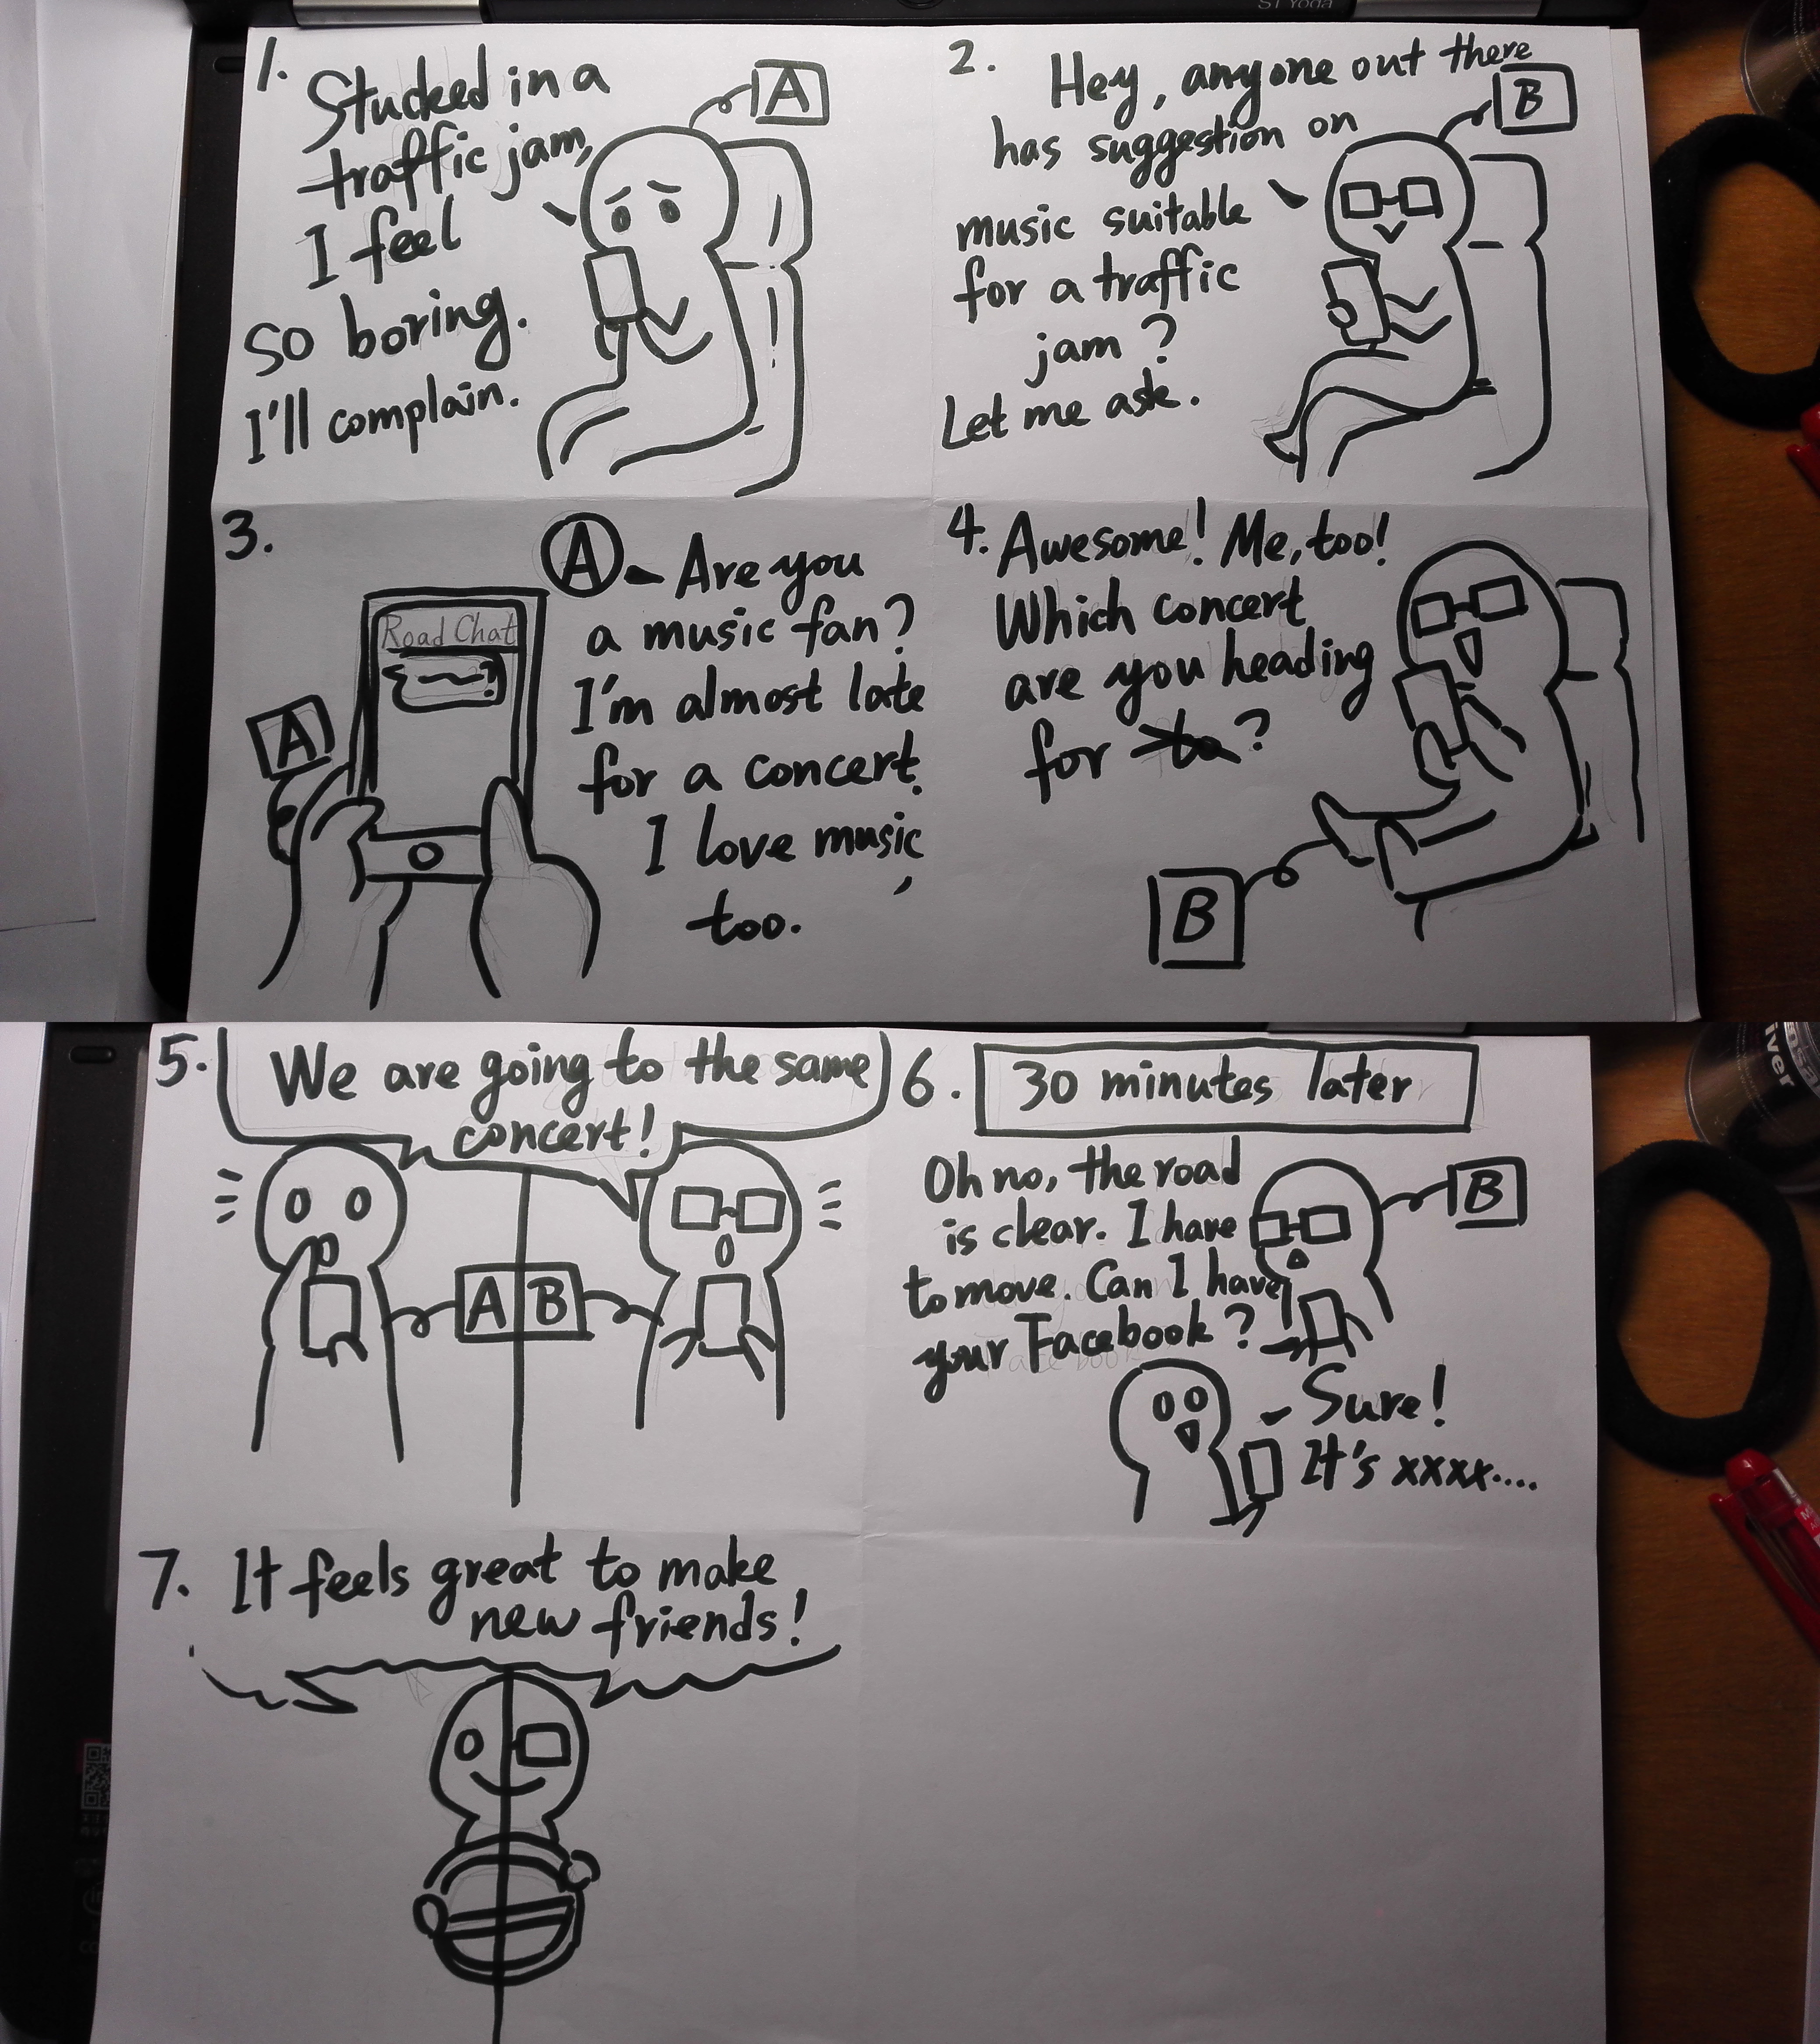 S1 Yoga
1.
Stucked in a
traffic jam,
I feel
so boring.
I'll complain.
A
2.
Hey, anyone out there
has suggestion on
music suitable
for a traffic
jam?
Let me ask.
B
3.
A
Road Chat
A - Are you
a music fan?
I'm almost late
for a concert.
I love music,
too.
4. Awesome! Me, too!
Which concert
are you heading
for to?
B
5.
We are going to the same
concert!
A B
6.
30 minutes later
Oh no, the road
is clear. I have
to move. Can I have
your Facebook?
B
Sure!
It's xxxx....
7. It feels great to make
new friends!